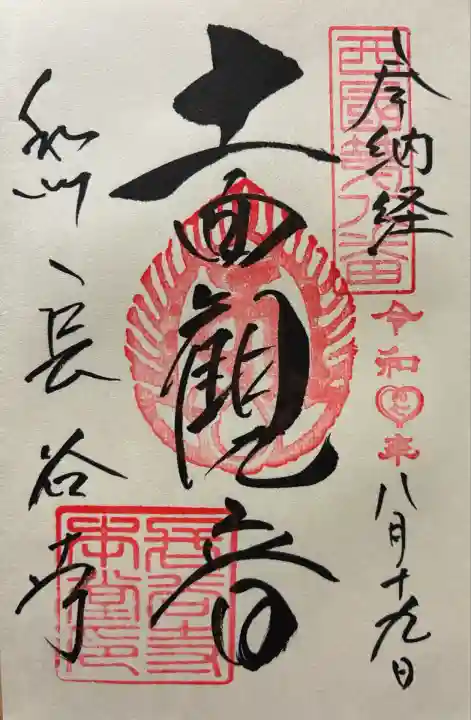 奉納経
西國第八番
令和年八月十九日
十一面觀音
和州
長谷寺
長谷寺
本堂印